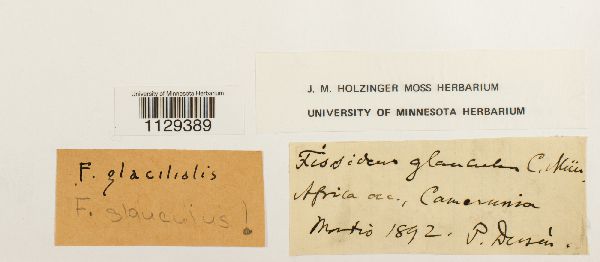 University of Minnesota Herbarium
1129389
J. M. HOLZINGER MOSS HERBARIUM
UNIVERSITY OF MINNESOTA HERBARIUM
F. glacilistis
F. glauculus!
Fissidens glauculus C. Müll.
Africa occ., Camerunia
1892. P. Dusén.